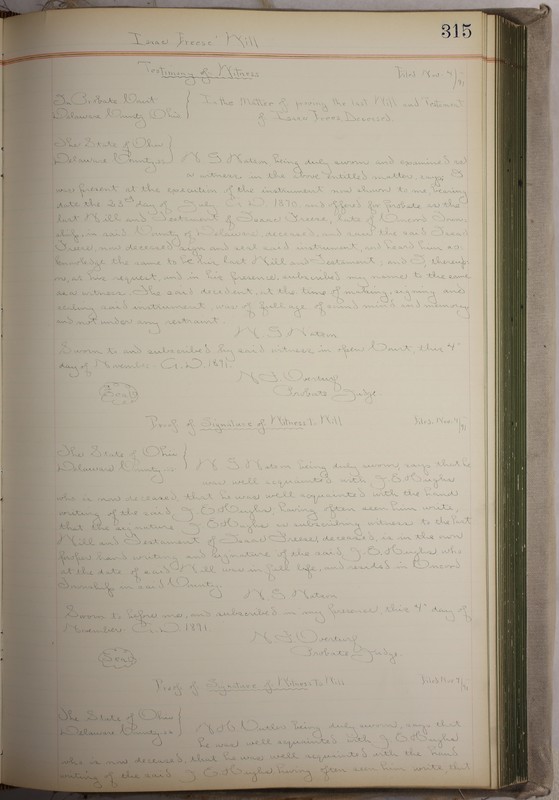 315
Isaac Freese' Will
Testimony of Witness Filed Nov. 4/91
In Probate Court
Delaware County Ohio
In the Matter of proving the last Will and Testament
of Isaac Freese Deceased.
The State of Ohio
Delaware County ss
N. S. Watson being duly sworn and examined as
a witness in the above entitled matter, says I
was present at the execution of the instrument now shown to me, bearing
date the 23rd day of July A.D. 1870 and offered for probate as the
last Will and Testament of Isaac Freese, late of Town
ship, in said County of Delaware deceased, and saw the said Isaac
Freese, now deceased sign and seal said instrument, and heard him ac
knowledge the same to be his last Will and Testament; and I thereup
on, at his request, and in his presence, subscribed my name to the same
as a witness. The said decedent, at the time of making, signing and
sealing said instrument, was of full age of sound mind and memory
and not under any restraint.
N. S. Watson
Sworn to and subscribed by said witness in open Court, this 4"
day of November A.D. 1891.
Probate Judge
Seal
Proof of Signature of Witness to Will Filed Nov. 4/91
The State of Ohio
Delaware County ss
N. S. Watson being duly sworn, says that he
was well acquainted with J. B.
who is now deceased, that he was well acquainted with the hand
writing of the said J. B. having often seen him write,
that the signature J. B. as subscribing witness to the last
Will and Testament of Isaac Freese, deceased, is in the own
proper hand writing and signature of the said J. B. who
at the date of said Will was in full life, and resided in
Township, in said County.
N. S. Watson
Sworn to before me, and subscribed in my presence, this 4" day of
November A.D. 1891
Probate Judge.
Seal
Proof of Signature of Witness to Will Filed Nov
The State of Ohio
Delaware County ss
being duly sworn, says that
he was well acquainted with J. B.
who is now deceased, that he was well acquainted with the hand
writing of the said J. B. having often seen him write, that